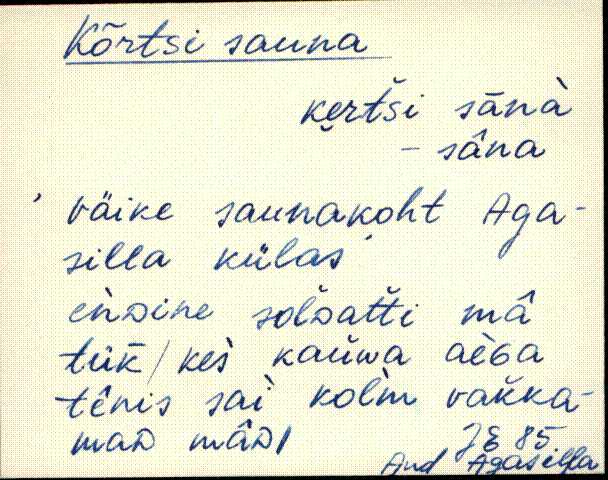 Kõrtsi sauna
kęrtši sānà
– sâna
' väike saunakoht Aga-
silla külas '
eǹᴅine solᴅatti mâ
tük / kes̀ kaūwa aèʙa
tênis sai kolm̀ vakka-
maᴅ mâᴅɪ
JE 85
And Agasilla